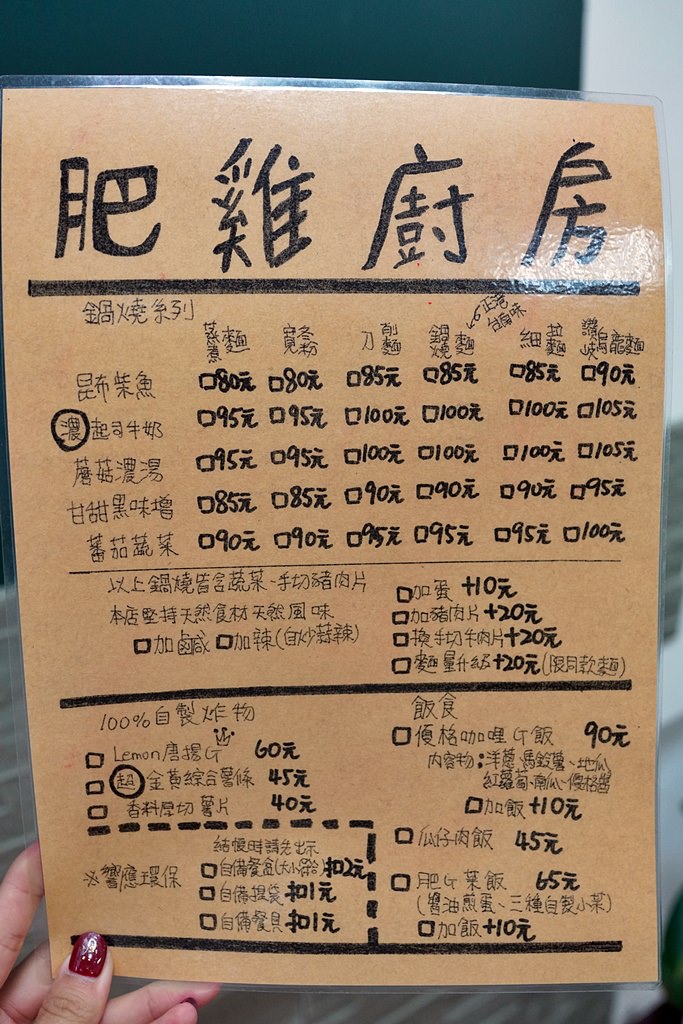 肥雞廚房
鍋燒系列
正港台南味
蒸煮麵 寬冬粉 刀削麵 鍋燒麵 細拉麵 讚岐烏龍麵
昆布柴魚 □80元 □80元 □85元 □85元 □85元 □90元
濃起司牛奶 □95元 □95元 □100元 □100元 □100元 □105元
蘑菇濃湯 □95元 □95元 □100元 □100元 □100元 □105元
甘甜黑味增 □85元 □85元 □90元 □90元 □90元 □95元
蕃茄蔬菜 □90元 □90元 □95元 □95元 □95元 □100元
以上鍋燒皆含蔬菜、手切豬肉片
本店堅持天然食材天然風味
□加鹹 □加辣(自炒蒜辣)
□加蛋 +10元
□加豬肉片+20元
□換手切牛肉片+20元
□麵量升級+20元(限同款麵)
100%自製炸物
□ Lemon唐揚G 60元
□ 超金黃綜合薯條 45元
□ 香料厚切薯片 40元
※響應環保
結帳時請先出示
□自備餐盒(大小不拘)扣2元
□自備提袋 扣1元
□自備餐具 扣1元
飯食
□優格咖哩G飯 90元
內容物:洋蔥、馬鈴薯、地瓜
紅蘿蔔、南瓜、優格醬
□加飯+10元
□瓜仔肉飯 45元
□肥G菜飯 65元
(醬油煎蛋、三種自製小菜)
□加飯+10元